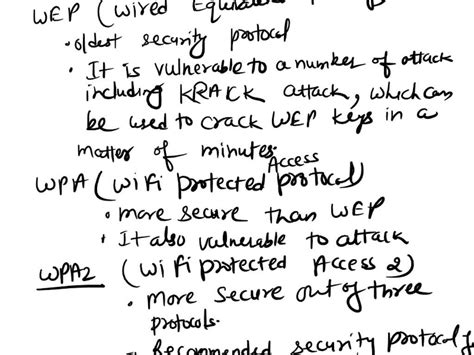 WEP (Wired Equivalent
• oldest security protocol
• It is vulnerable to a number of attack
including KRACK attack, which can
be used to crack WEP keys in a
matter of minutes.
Access
WPA (WiFi protected protocol)
• more secure than WEP
• It also vulnerable to attack
WPA2 (WiFi protected Access 2)
• More secure out of three
protocols.
• Recommended security protocol